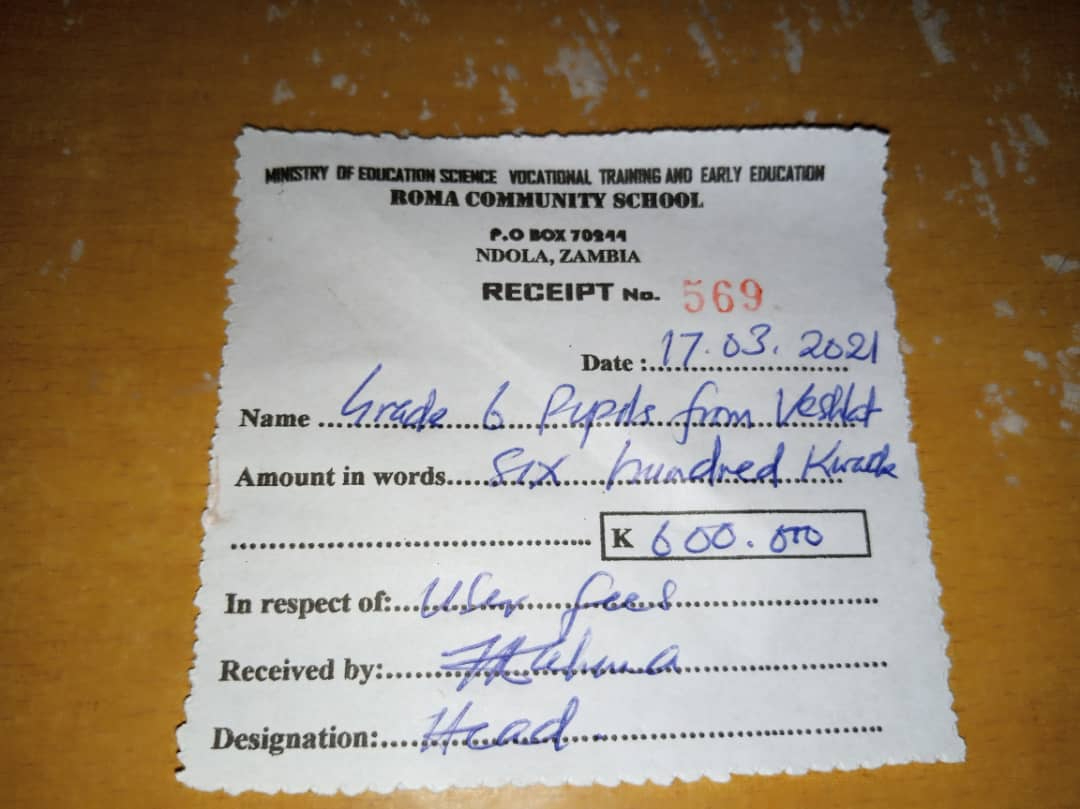 MINISTRY OF EDUCATION SCIENCE VOCATIONAL TRAINING AND EARLY EDUCATION
ROMA COMMUNITY SCHOOL
P.O BOX 70244
NDOLA, ZAMBIA
RECEIPT No. 569
Date : 17.03.2021
Name Grade 6 Pupils from
Amount in words Six hundred Kwacha
K 600.00
In respect of: User fees
Received by:
Designation: Head.